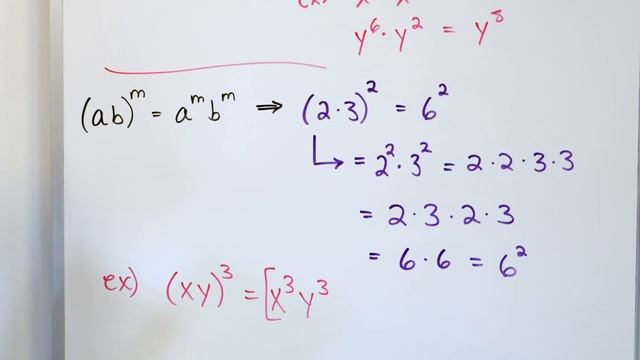 y⁶ · y² = y⁸
(ab)ᵐ = aᵐbᵐ ⇒ (2·3)² = 6²
↳ = 2²·3² = 2·2·3·3
= 2·3·2·3
= 6·6 = 6²
ex) (xy)³ = [x³y³